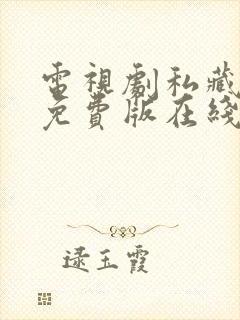 電視劇私藏
免費版在綫
逯玉霞